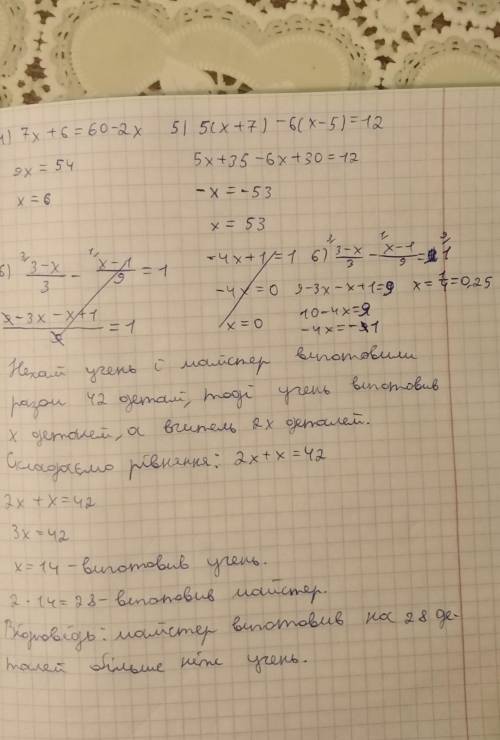 4) 7x + 6 = 60 - 2x   5) 5(x + 7) - 6(x - 5) = 12
9x = 54   5x + 35 - 6x + 30 = 12
x = 6   -x = -53
x = 53
6) 3-x/3 - x-1/9 = 1   -4x + 1 = 1   6) 3-x/3 - x-1/9 = 1
9 - 3x - x + 1/9 = 1   -4x = 0   9 - 3x - x + 1 = 9   x = 1/4 = 0,25
x = 0   10 - 4x = 9
-4x = -1
Нехай учень і майстер виготовили
разом 42 деталі, тоді учень виготовив
x деталей, а вчитель 2x деталей.
Складаємо рівняння: 2x + x = 42
2x + x = 42
3x = 42
x = 14 - виготовив учень.
2 · 14 = 28 - виготовив майстер.
Відповідь: майстер виготовив на 28 де-
талей більше ніж учень.